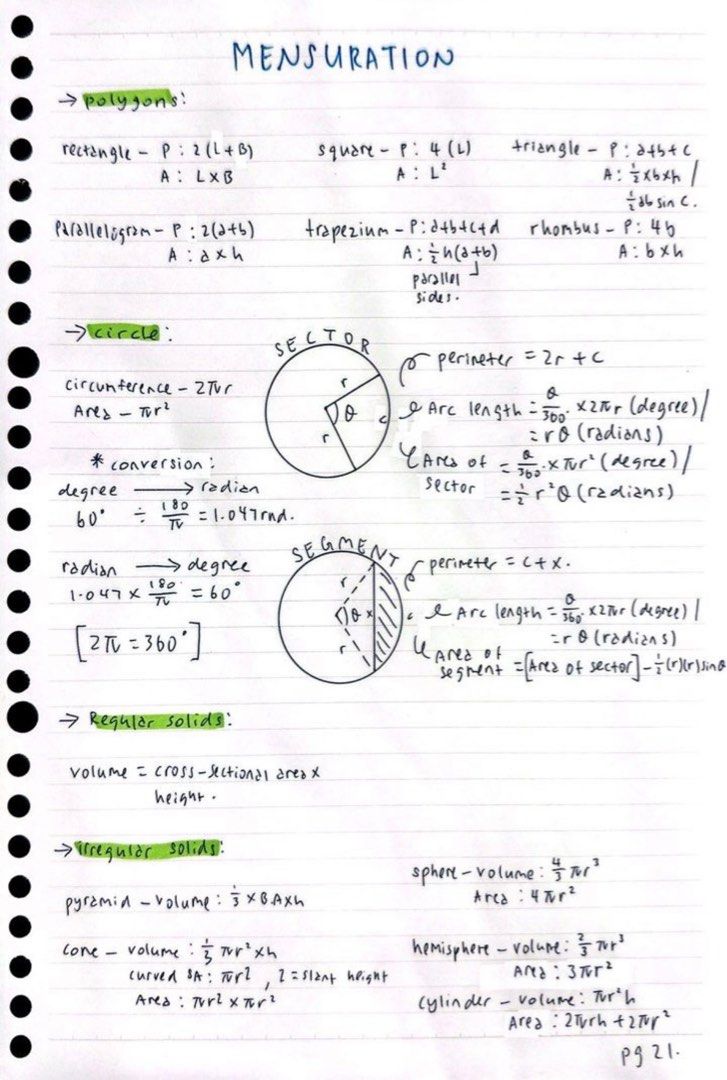 MENSURATION
→ polygons:
rectangle - P: 2(L+B)
A: L×B
square - P: 4(L)
A: L²
triangle - P: a+b+c
A: ½×b×h /
½ab sin C.
Parallelogram - P: 2(a+b)
A: a×h
trapezium - P: a+b+c+d
A: ½h(a+b)
parallel
sides.
rhombus - P: 4b
A: b×h
→ circle:
circumference - 2πr
Area - πr²
* conversion:
degree → radian
60° ÷ 180/π = 1.047rad.
radian → degree
1.047 × 180/π = 60°
[2π = 360°]
SECTOR
r
θ
c
r
perimeter = 2r + c
Arc length = θ/360° × 2πr (degree) /
= rθ (radians)
Area of = θ/360° × πr² (degree) /
sector = ½ r²θ (radians)
SEGMENT
r
θ x
c
r
perimeter = c + x.
Arc length = θ/360° × 2πr (degree) /
= rθ (radians)
Area of
segment = [Area of sector] - ½(r)(r)sinθ
→ Regular solids:
volume = cross-sectional area ×
height.
→ irregular solids:
pyramid - volume: ⅓ × B.A×h
cone - volume: ⅓ πr² × h
curved SA: πrl, l = slant height
Area: πrl × πr²
sphere - volume: 4/3 πr³
Area: 4πr²
hemisphere - volume: ⅔ πr³
Area: 3πr²
cylinder - volume: πr²h
Area: 2πrh + 2πr²
pg 21.